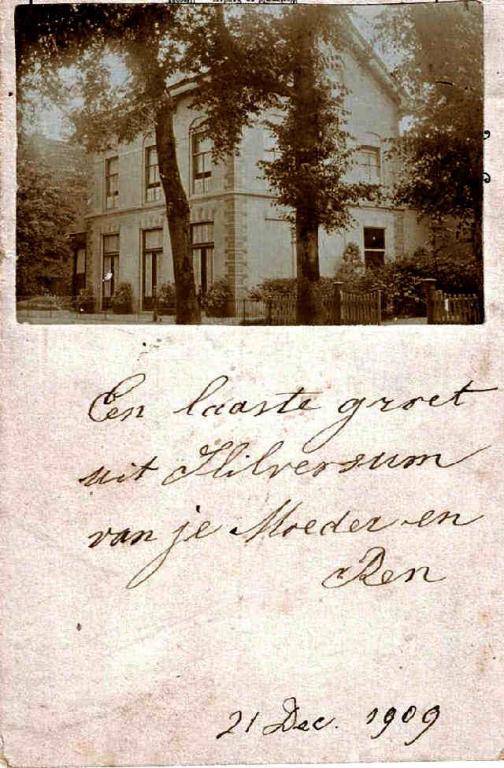 Een laaste groet
uit Hilversum
van je Moeder en
Ren
21 Dec. 1909